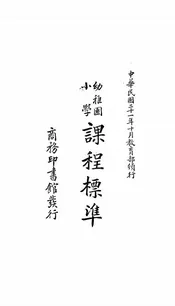 中華民國二十一年十月教育部頒行
幼稚園
小學
課程標準
商務印書館發行